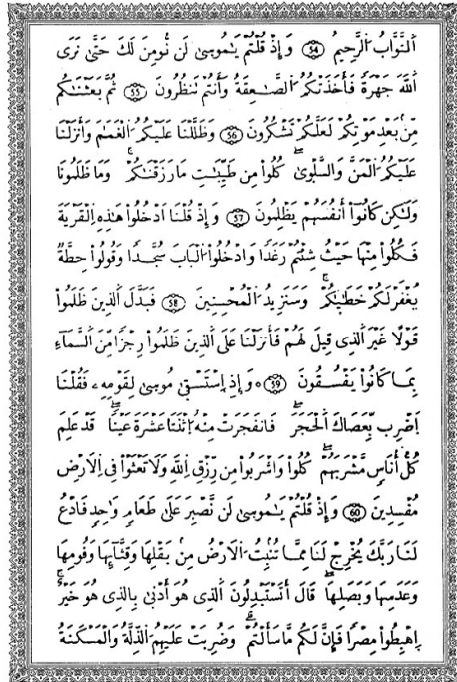 اَلتَّوَّابُ اَلرَّحِيمُ 54 وَإِذْ قُلْتُمْ يَٰمُوسَىٰ لَن نُّومِنَ لَكَ حَتَّىٰ نَرَى
اَللَّهَ جَهْرَةً فَأَخَذَتْكُمُ اُلصَّٰعِقَةُ وَأَنتُمْ تَنظُرُونَ 55 ثُمَّ بَعَثْنَٰكُم
مِّنۢ بَعْدِ مَوْتِكُمْ لَعَلَّكُمْ تَشْكُرُونَ 56 وَظَلَّلْنَا عَلَيْكُمُ اُلْغَمَٰمَ وَأَنزَلْنَا
عَلَيْكُمُ اُلْمَنَّ وَالسَّلْوَىٰ كُلُواْ مِن طَيِّبَٰتِ مَا رَزَقْنَٰكُمْ وَمَا ظَلَمُونَا
وَلَٰكِن كَانُوٓاْ أَنفُسَهُمْ يَظْلِمُونَ 57 وَإِذْ قُلْنَا اَدْخُلُواْ هَٰذِهِ اِلْقَرْيَةَ
فَكُلُواْ مِنْهَا حَيْثُ شِئْتُمْ رَغَدًا وَادْخُلُواْ اُلْبَابَ سُجَّدًا وَقُولُواْ حِطَّةٌ
يُغْفَرْ لَكُمْ خَطَٰيَٰكُمْ وَسَنَزِيدُ اُلْمُحْسِنِينَ 58 فَبَدَّلَ اَلذِينَ ظَلَمُواْ
قَوْلًا غَيْرَ اَلذِى قِيلَ لَهُمْ فَأَنزَلْنَا عَلَى اَلذِينَ ظَلَمُواْ رِجْزًا مِّنَ اَلسَّمَآءِ
بِمَا كَانُواْ يَفْسُقُونَ 59 وَإِذِ اِسْتَسْقَىٰ مُوسَىٰ لِقَوْمِهِۦ فَقُلْنَا
اَضْرِب بِّعَصَاكَ اَلْحَجَرَ فَانفَجَرَتْ مِنْهُ اُثْنَتَا عَشْرَةَ عَيْنًا قَدْ عَلِمَ
كُلُّ أُنَاسٍ مَّشْرَبَهُمْ كُلُواْ وَاشْرَبُواْ مِن رِّزْقِ اِللَّهِ وَلَا تَعْثَوْاْ فِى اِلَارْضِ
مُفْسِدِينَ 60 وَإِذْ قُلْتُمْ يَٰمُوسَىٰ لَن نَّصْبِرَ عَلَىٰ طَعَامٍ وَٰحِدٍ فَادْعُ
لَنَا رَبَّكَ يُخْرِجْ لَنَا مِمَّا تُنۢبِتُ اُلَارْضُ مِنۢ بَقْلِهَا وَقِثَّآئِهَا وَفُومِهَا
وَعَدَسِهَا وَبَصَلِهَا قَالَ أَتَسْتَبْدِلُونَ اَلذِى هُوَ أَدْنَىٰ بِالذِى هُوَ خَيْرٌ
اِهْبِطُواْ مِصْرًا فَإِنَّ لَكُم مَّا سَأَلْتُمْ وَضُرِبَتْ عَلَيْهِمُ اُلذِّلَّةُ وَالْمَسْكَنَةُ